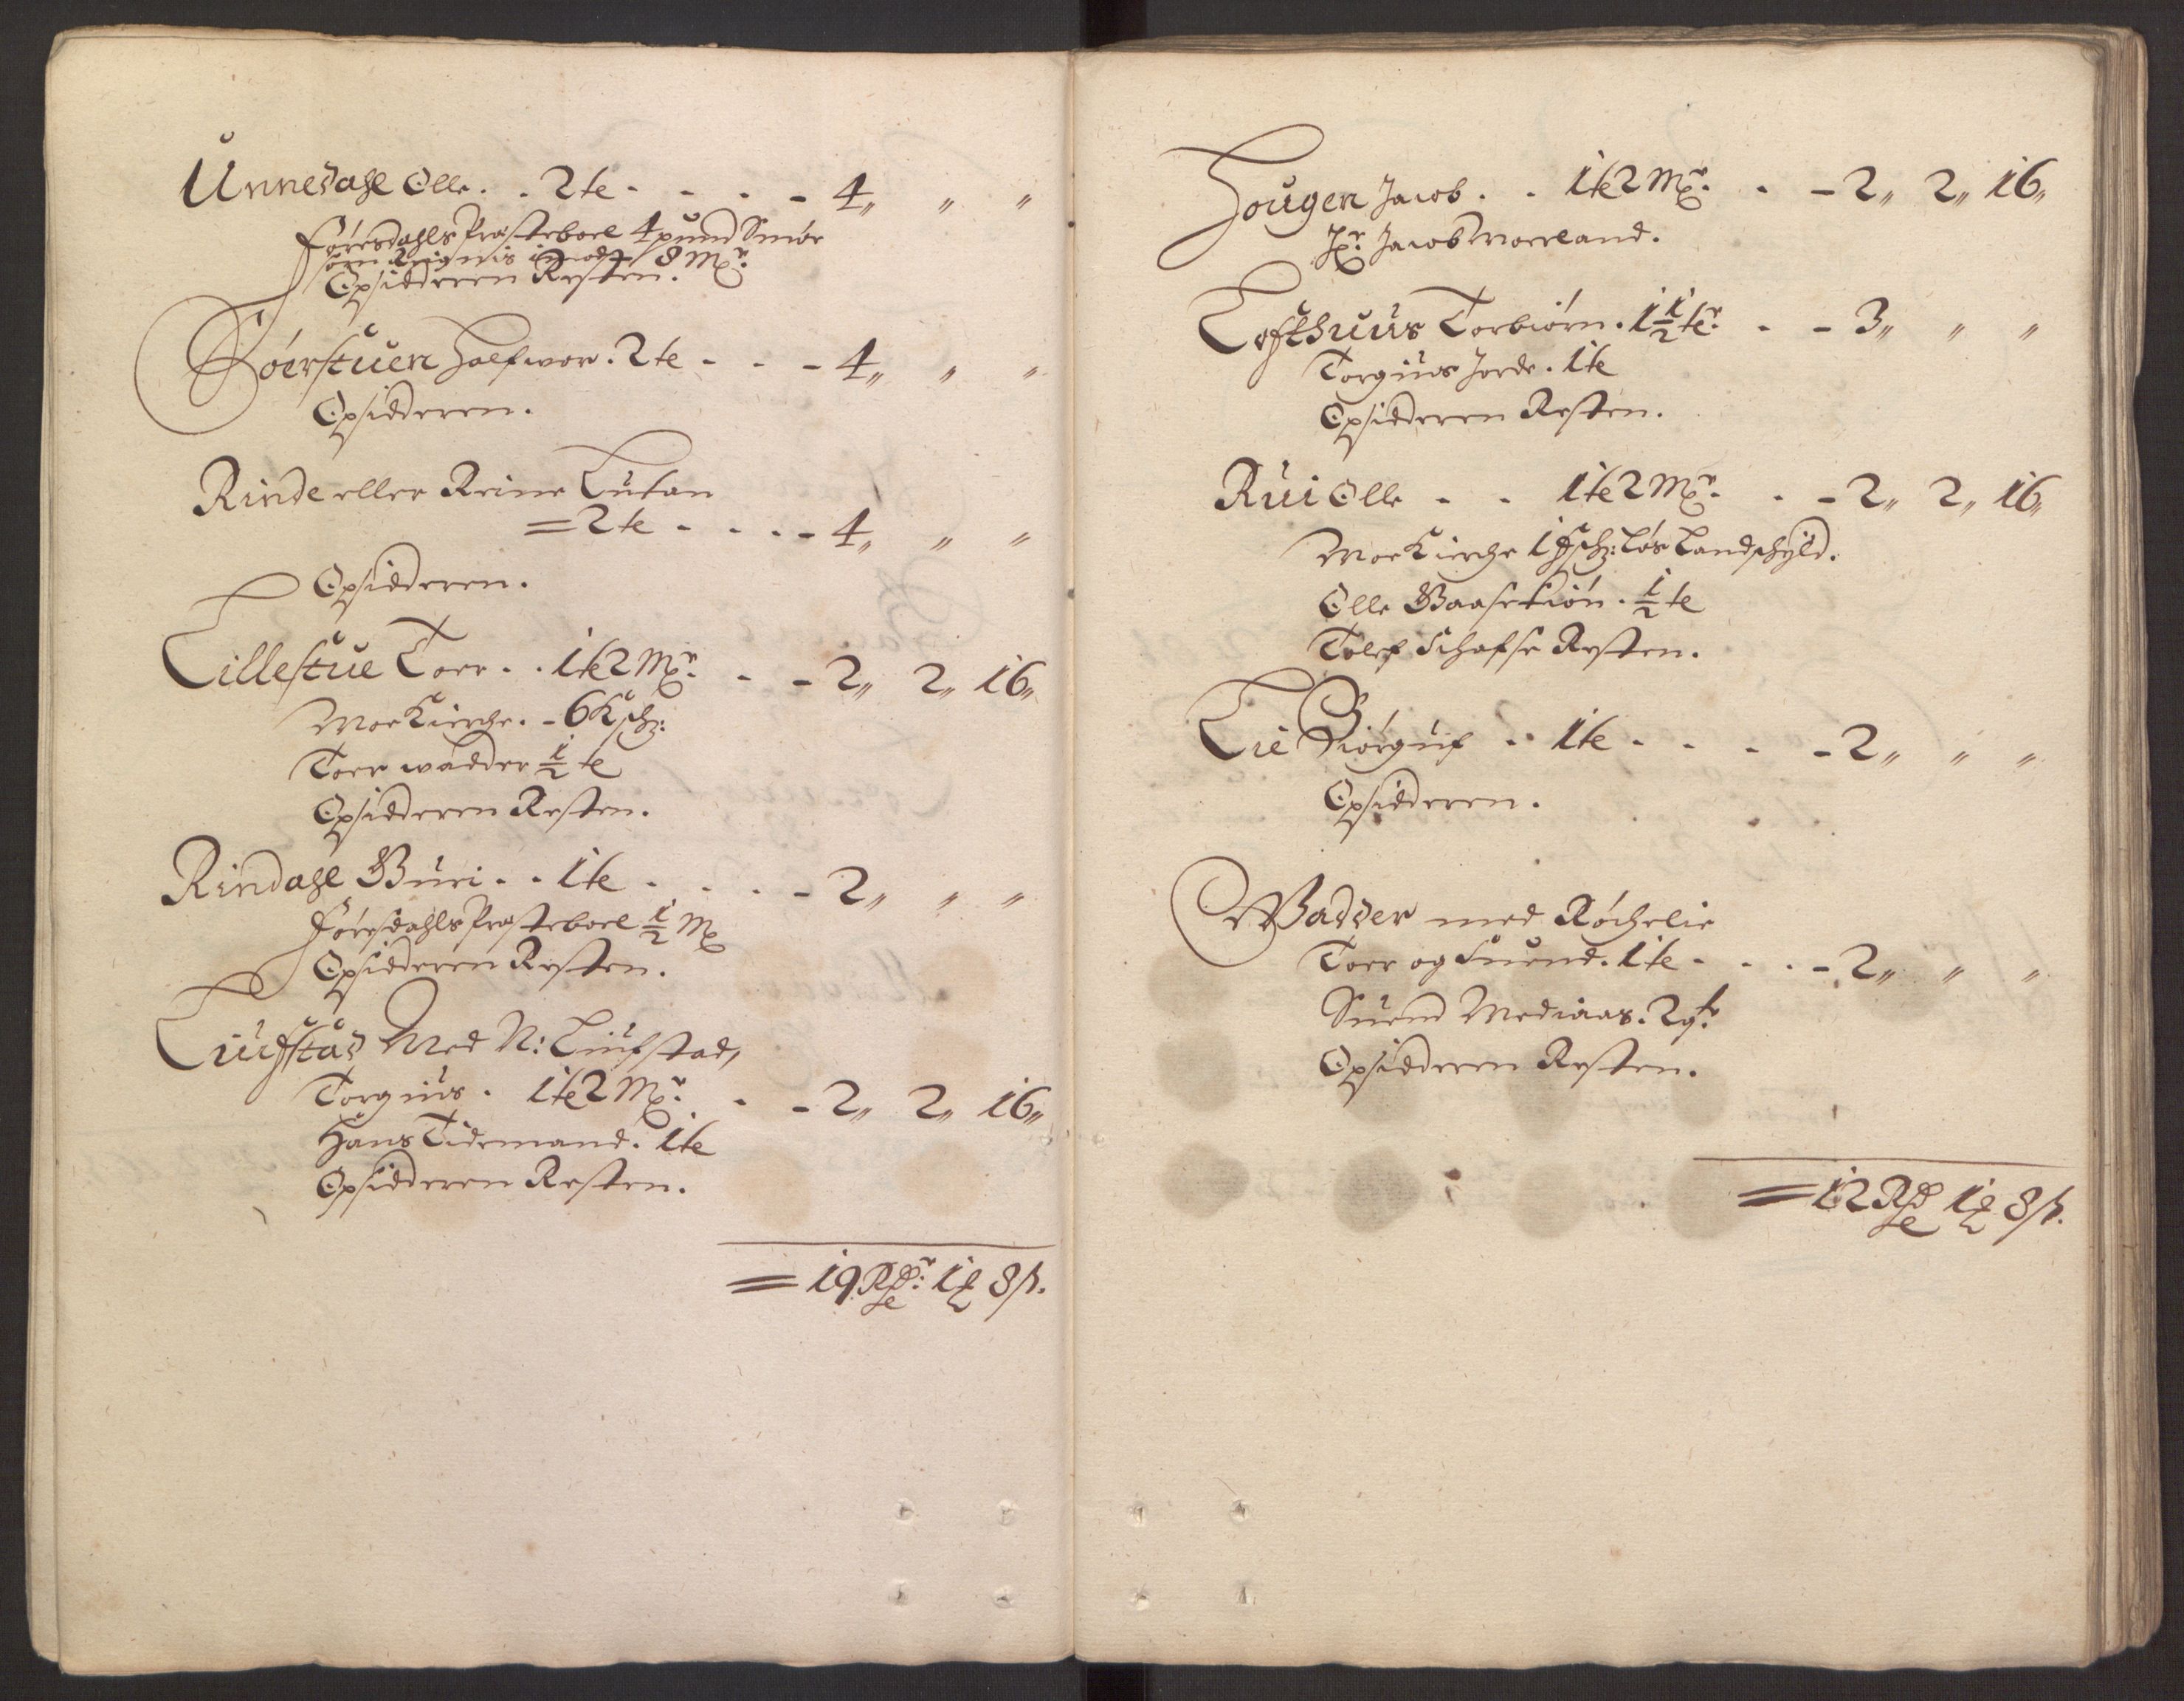 Unnedahl Olle . . 2 te - - - - 4„ „ „
Føresdahls Præsteboel 4 pund Smør
som Reignis imod 8 Mrr:
Opsidderen Resten.
Søerstuen Halfwor . 2 te - - - 4„ „ „
Opsidderen.
Rinde eller Reine Lutan
= 2 te - - - - 4„ „ „
Opsidderen.
Lillestue Torr . . 1 te 2 Mrr: - - 2„ 2„ 16„
Moe Kirche . - 6 K sch:
Torr wadder ½ te
Opsidderen Resten.
Rindahl Buri . . 1 te . . . - 2„ „ „
Føresdahls Præsteboel ½ Mrk
Opsidderen Resten.
Liufstad Med N: Liufstad,
Torgius . 1 te 2 Mrr: - - 2„ 2„ 16„
Hans Tidemand . 1 te
Opsidderen Resten.
= 19 Rdr: 1 ℔ 8 s.
Hougen Jacob . . 1 te 2 Mrr: . - 2„ 2„ 16„
Hr: Jacob Morland.
Tofthuus Torbiørn . 1½ ter: - - 3„ „ „
Torgius Jorde . 1 te
Opsidderen Resten.
Rui Olle - - 1 te 2 Mrr: . - 2„ 2„ 16„
Moe Kirche 1 sch: Løs Landschyld.
Olle Baasetiøn . ½ te
Tolef Schafse Resten.
Lie Biørguf . . 1 te - - - - 2„ „ „
Opsidderen.
Wadder med Røchelie
Torr og Suend . 1 te - . . - 2„ „ „
Suend Mediaas . 2 qtr:
Opsidderen Resten.
= 12 Rd 1 ℔ 8 s.